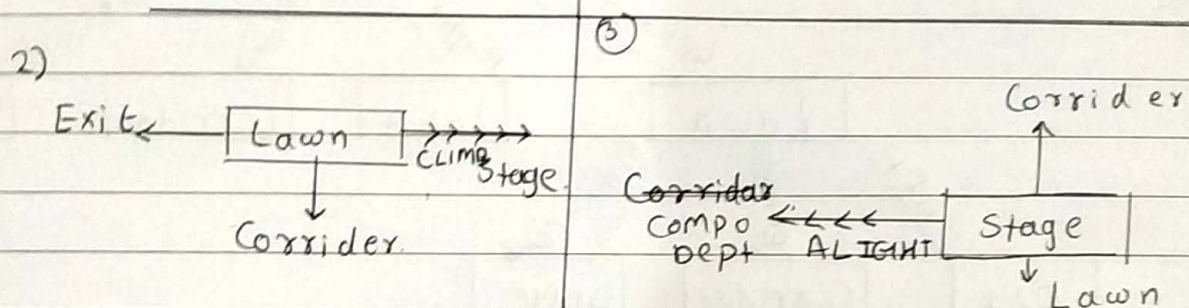 2)
Exit
Lawn
CLIMB
Stage
Corrider
③
Corrider
Corridar
Compo
Dept
ALIGHT
Stage
Lawn